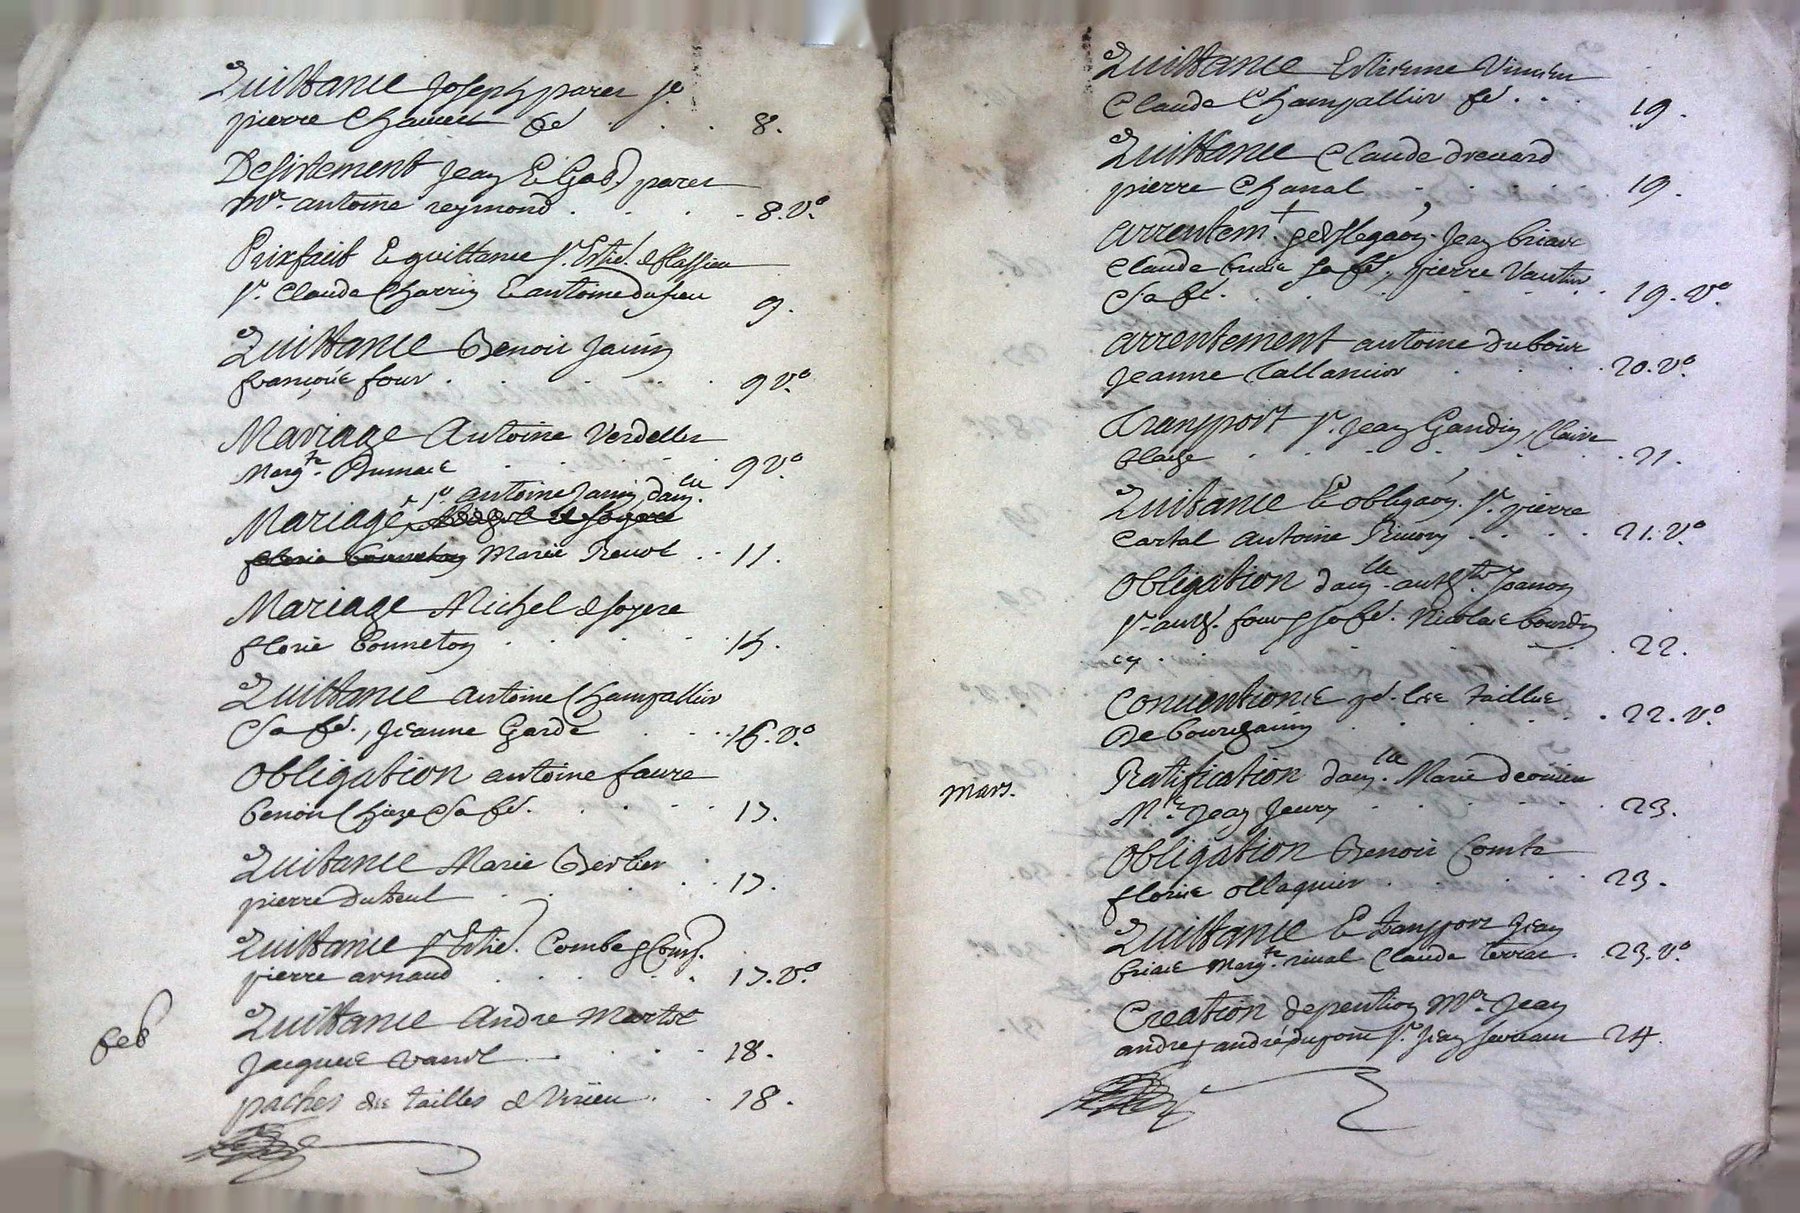 Quittance Joseph parer
pierre Chauvet fé . . . 8.
Desistement Jean E Gad parer
Mr. antoine reymond . . . 8. Vo.
Prixfait E quittance Sr. Estie.
Sr. Claude Charrin E antoine dufieu 9.
Quittance Benoit Janin
françoise four . . . 9 Vo.
Mariage Antoine Verdellet
Margte. Dumas . . . 9 Vo.
antoine Janin, damlle.
Mariage
Marie Revol . . 11.
Mariage Michel
florie Bonneton . . . 15.
Quittance antoine Champallier
Sa fé., Jeanne Garde . . . 16. Vo.
Obligation antoine faure
benoit Chieze Sa fé. . . . 17.
Quitance Marie Berlier
pierre duteul . . . 17.
Quittance Sr Estie. Combe
pierre arnaud . . . 17. Vo.
feb
Quittance Andre Martot
Jacques . . . 18.
paches des tailles de Virieu . . 18.
Quittance Estienne Vincen
Claude Champallier fé . . . 19.
Quittance Claude drevard
pierre Chanal . . . 19.
Arrentem. Jean briave
Claude Sa fé, pierre Vautier
Sa fé. . . . 19. Vo.
Arrentement antoine
Jeanne Callamier . . . 20. Vo.
Transport Sr. Jean Gandin, Claire
blaise . . . 21.
Quitance E obligaôn. Sr. pierre
Cartal antoine . . . 21. Vo.
Obligation damlle. Joanon
Sr. anth. four Sa fé. Nicolas bourdin
. . . 22.
Conventions pr. les tailles
De bourgainy . . . 22. Vo.
mars.
Ratification damlle. Marie
Me. Jean Jeury . . . 23.
Obligation Benoit Comte
florie ollagnier . . . 23.
Quittance E transport Jean
briave Margte. rival Claude terras . 23. Vo.
Creation de pention Mr. Jean
andre, andré dupoin Sr. Jean 24.